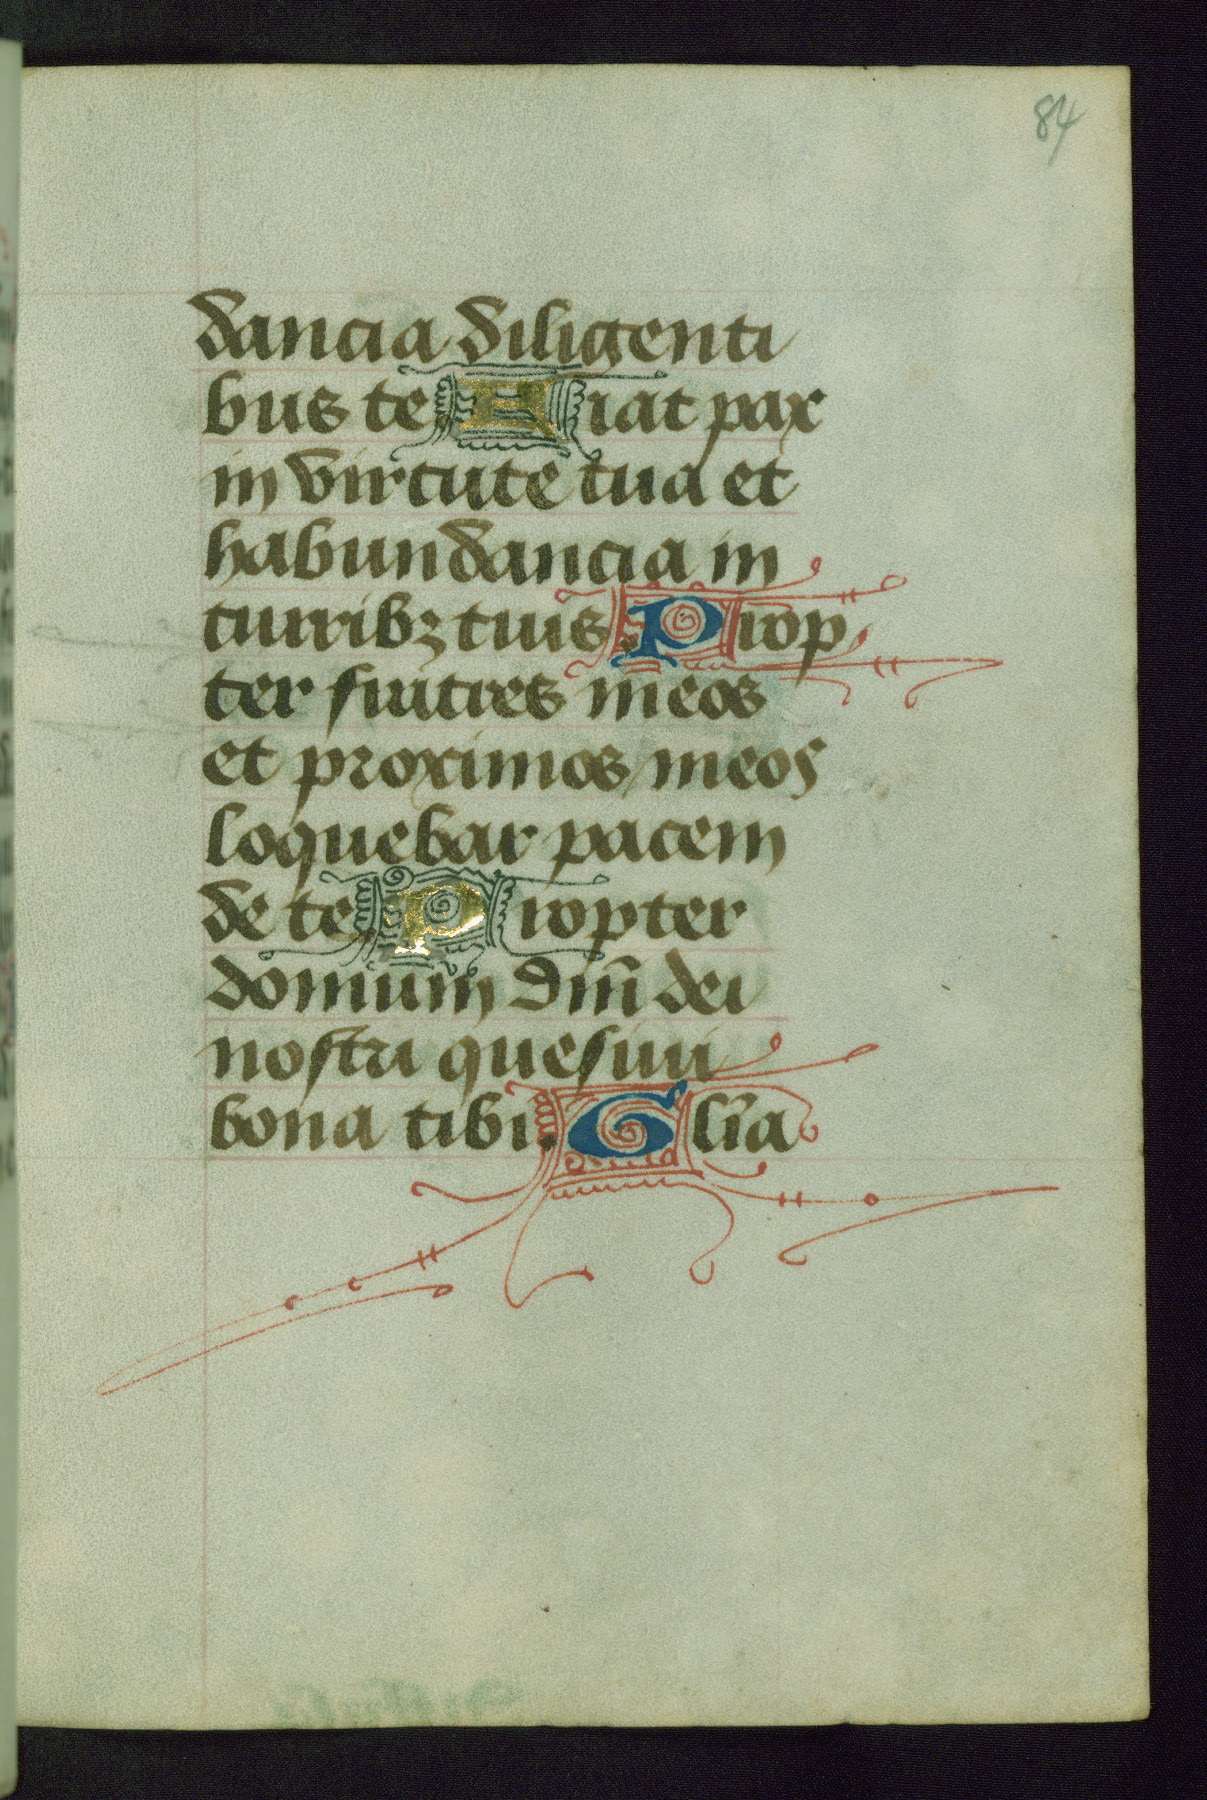 84
dancia diligenti
bus te Fiat pax
in virtute tua et
habundancia in
turribꝫ tuis. Prop
ter fratres meos
et proximos meos
loquebar pacem
de te Propter
domum dm̄ dei
nostri quesiui
bona tibi. Glīa